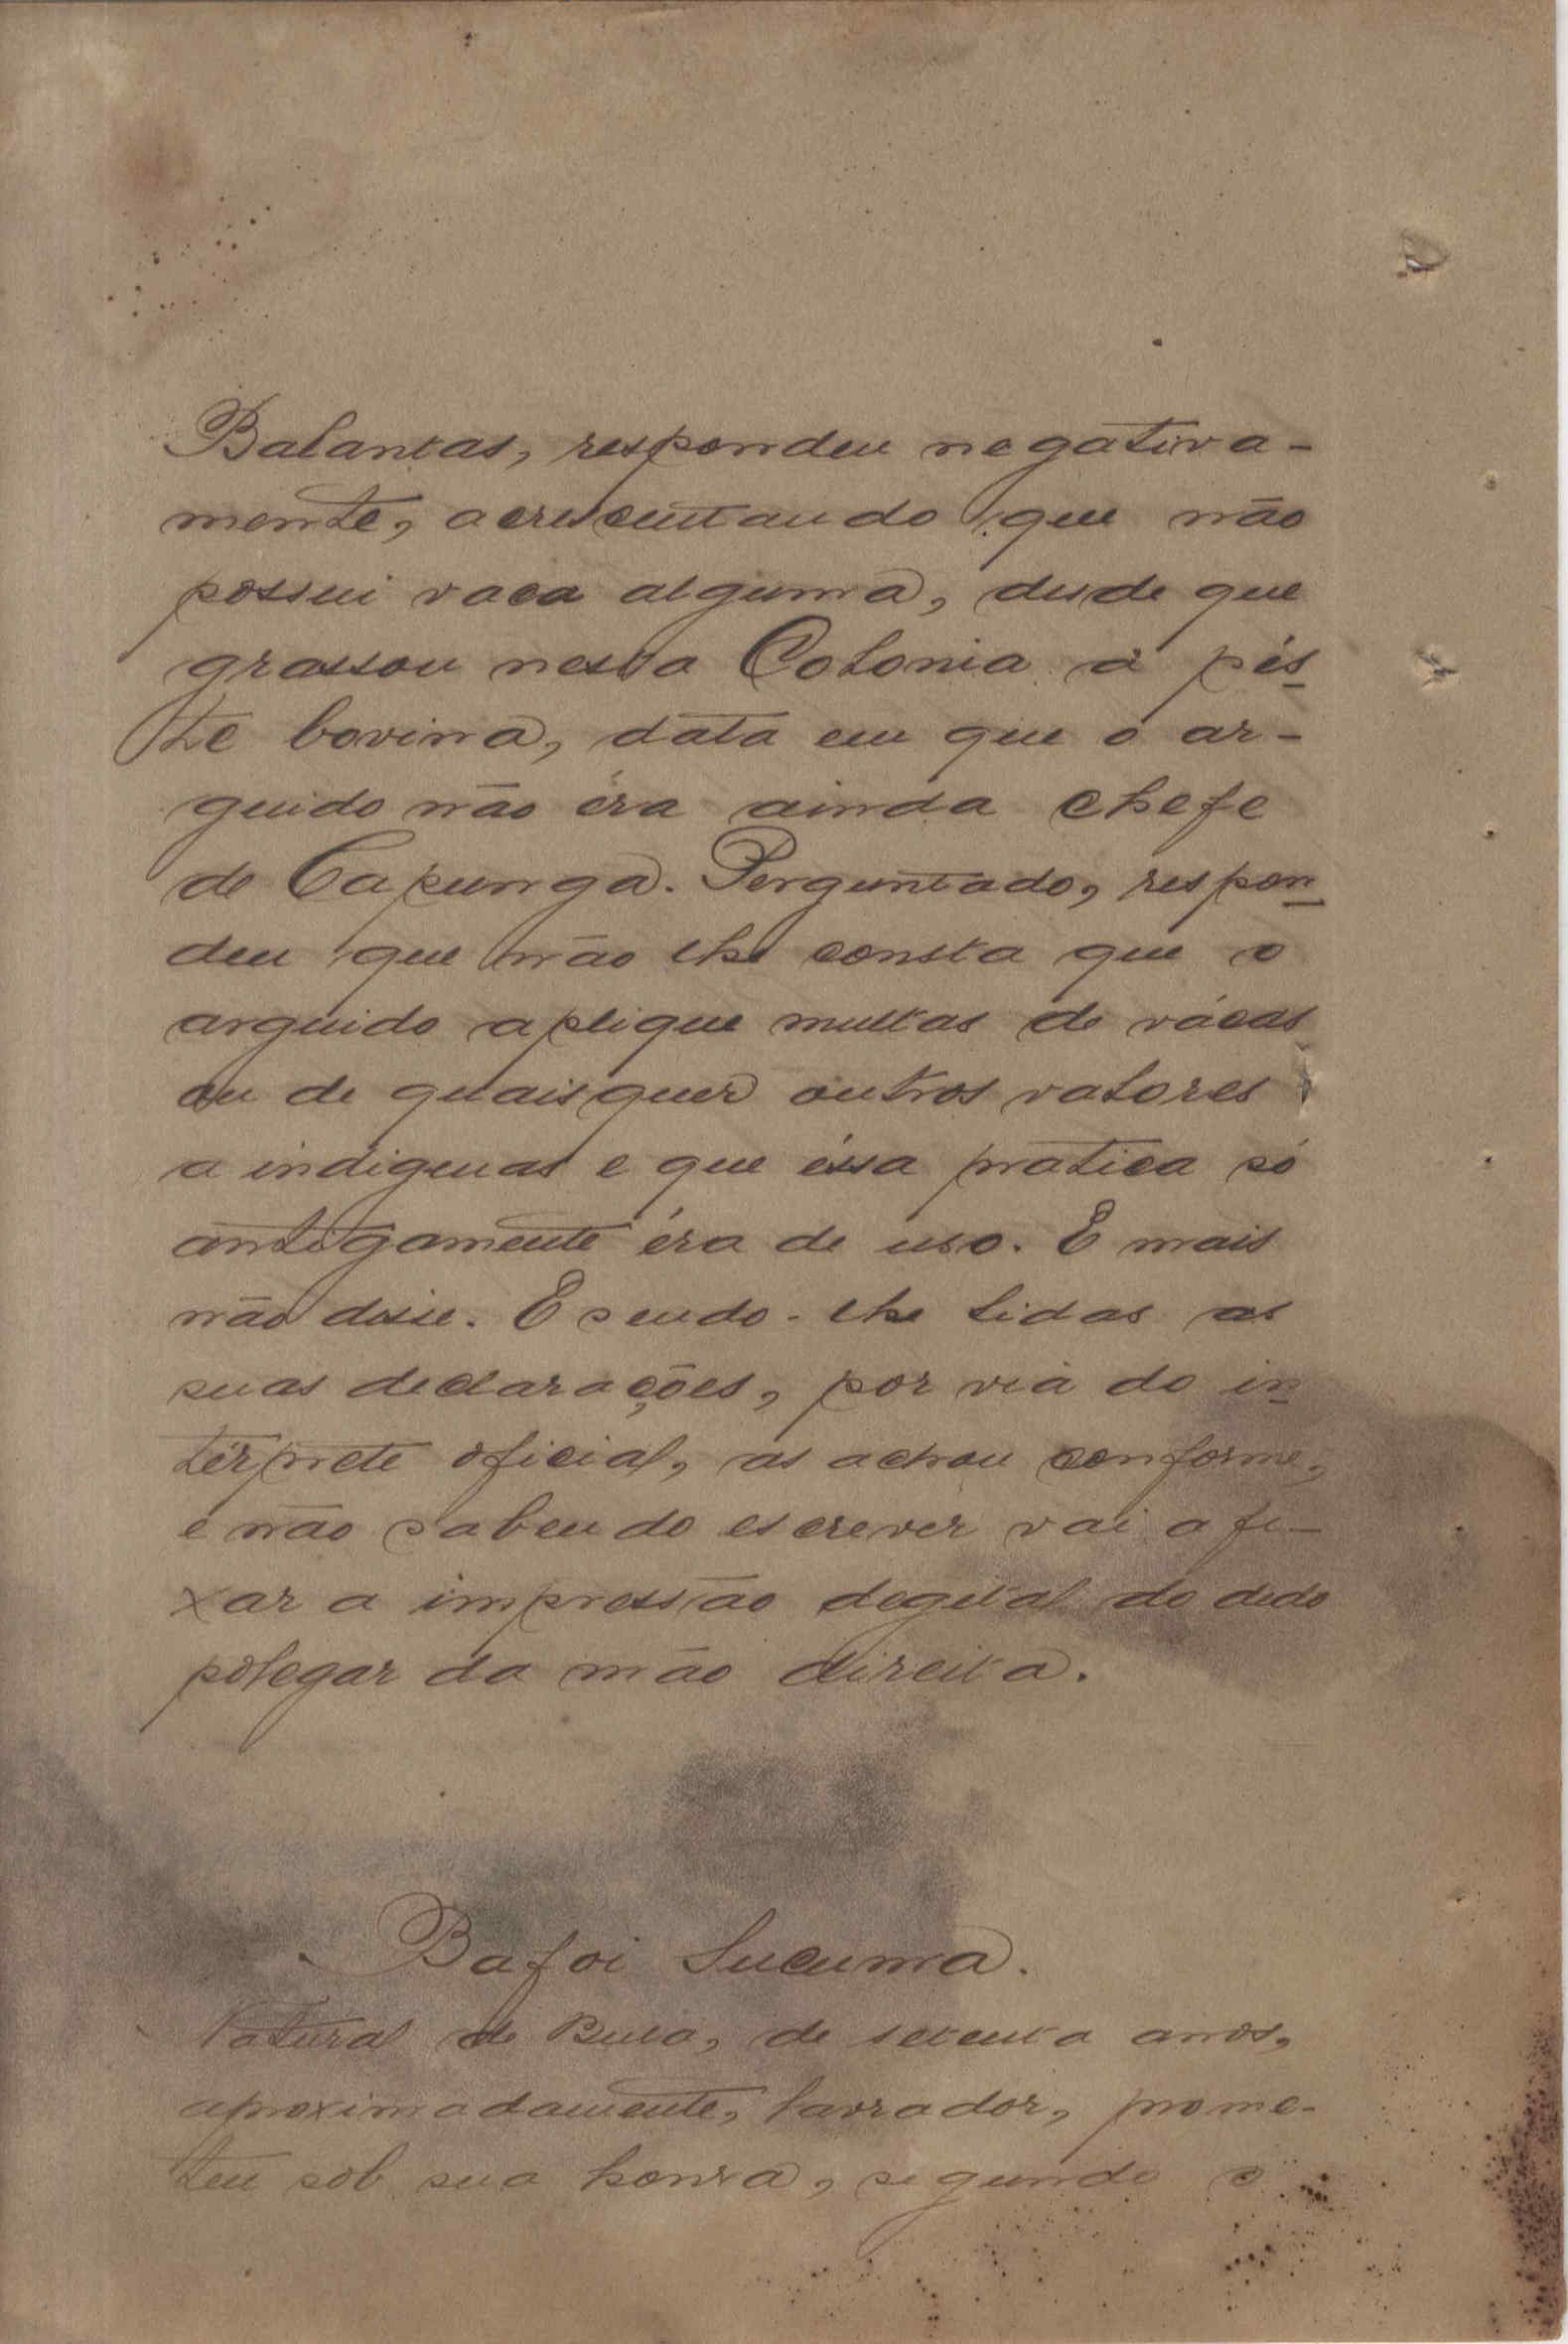 Balantas, respondeu negativa-
mente, acrescentando que não
possui vaca alguma, desde que
grassou nesta Colonia a pés-
te bovina, data em que o ar-
guido não éra ainda chefe
de Capunga. Perguntado, respon-
deu que não lhe consta que o
arguido aplique multas de vácas
ou de quaisquer outros valores
a indigenas e que éssa pratica só
antigamente éra de uso. E mais
não disse. E sendo-lhe lidas as
suas declarações, por via do in-
térprete oficial, as achou conforme,
e não sabendo escrever vai afi-
xar a impressão degital do dedo
polegar da mão direita.
Bafoi Sucuma.
Natural de Bula, de setenta anos,
aproximadamente, lavrador, prome-
teu sob sua honra, segundo o